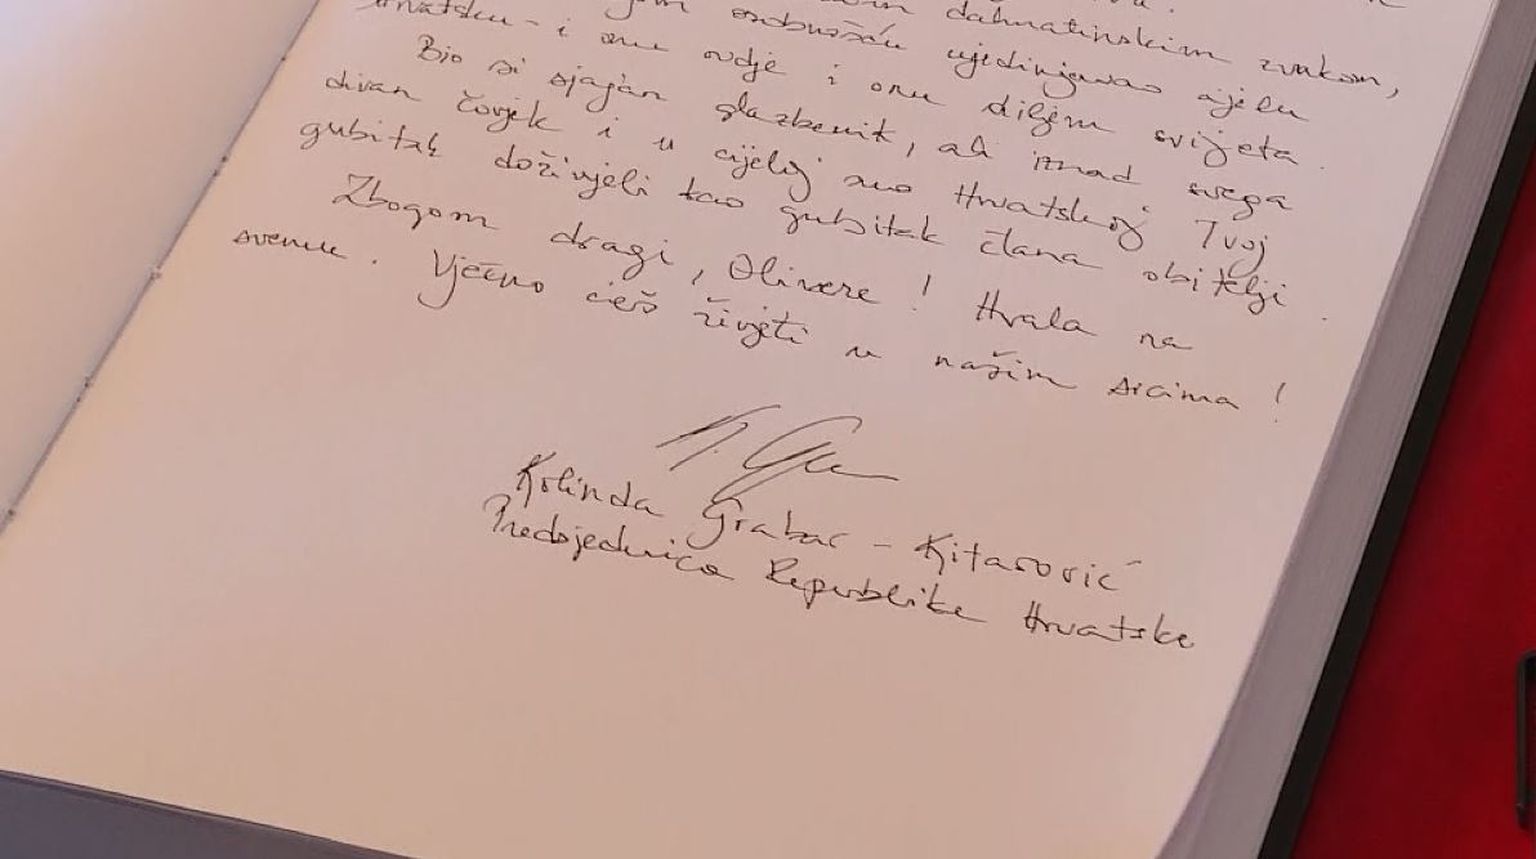 dalmatinskim zvukom,
osobnošću ujedinjavao cijelu
Hrvatsku - i onu ovdje i onu diljem svijeta.
Bio si sjajan glazbenik, ali iznad svega
divan čovjek i u cijeloj smo Hrvatskoj Tvoj
gubitak doživjeli kao gubitak člana obitelji.
Zbogom dragi, Olivere! Hvala na
svemu. Vječno ćeš živjeti u našim srcima!
Kolinda Grabar-Kitarović
Predsjednica Republike Hrvatske